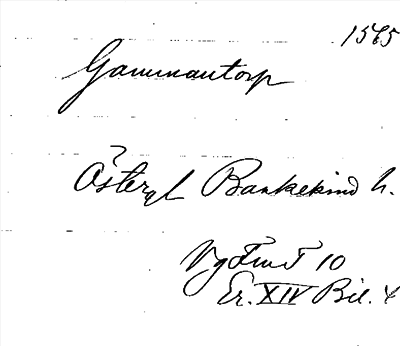 1565
Gammantorp
Östergl Bankekind h.
Vg Fru T 10
Er. XIV Bil. 4